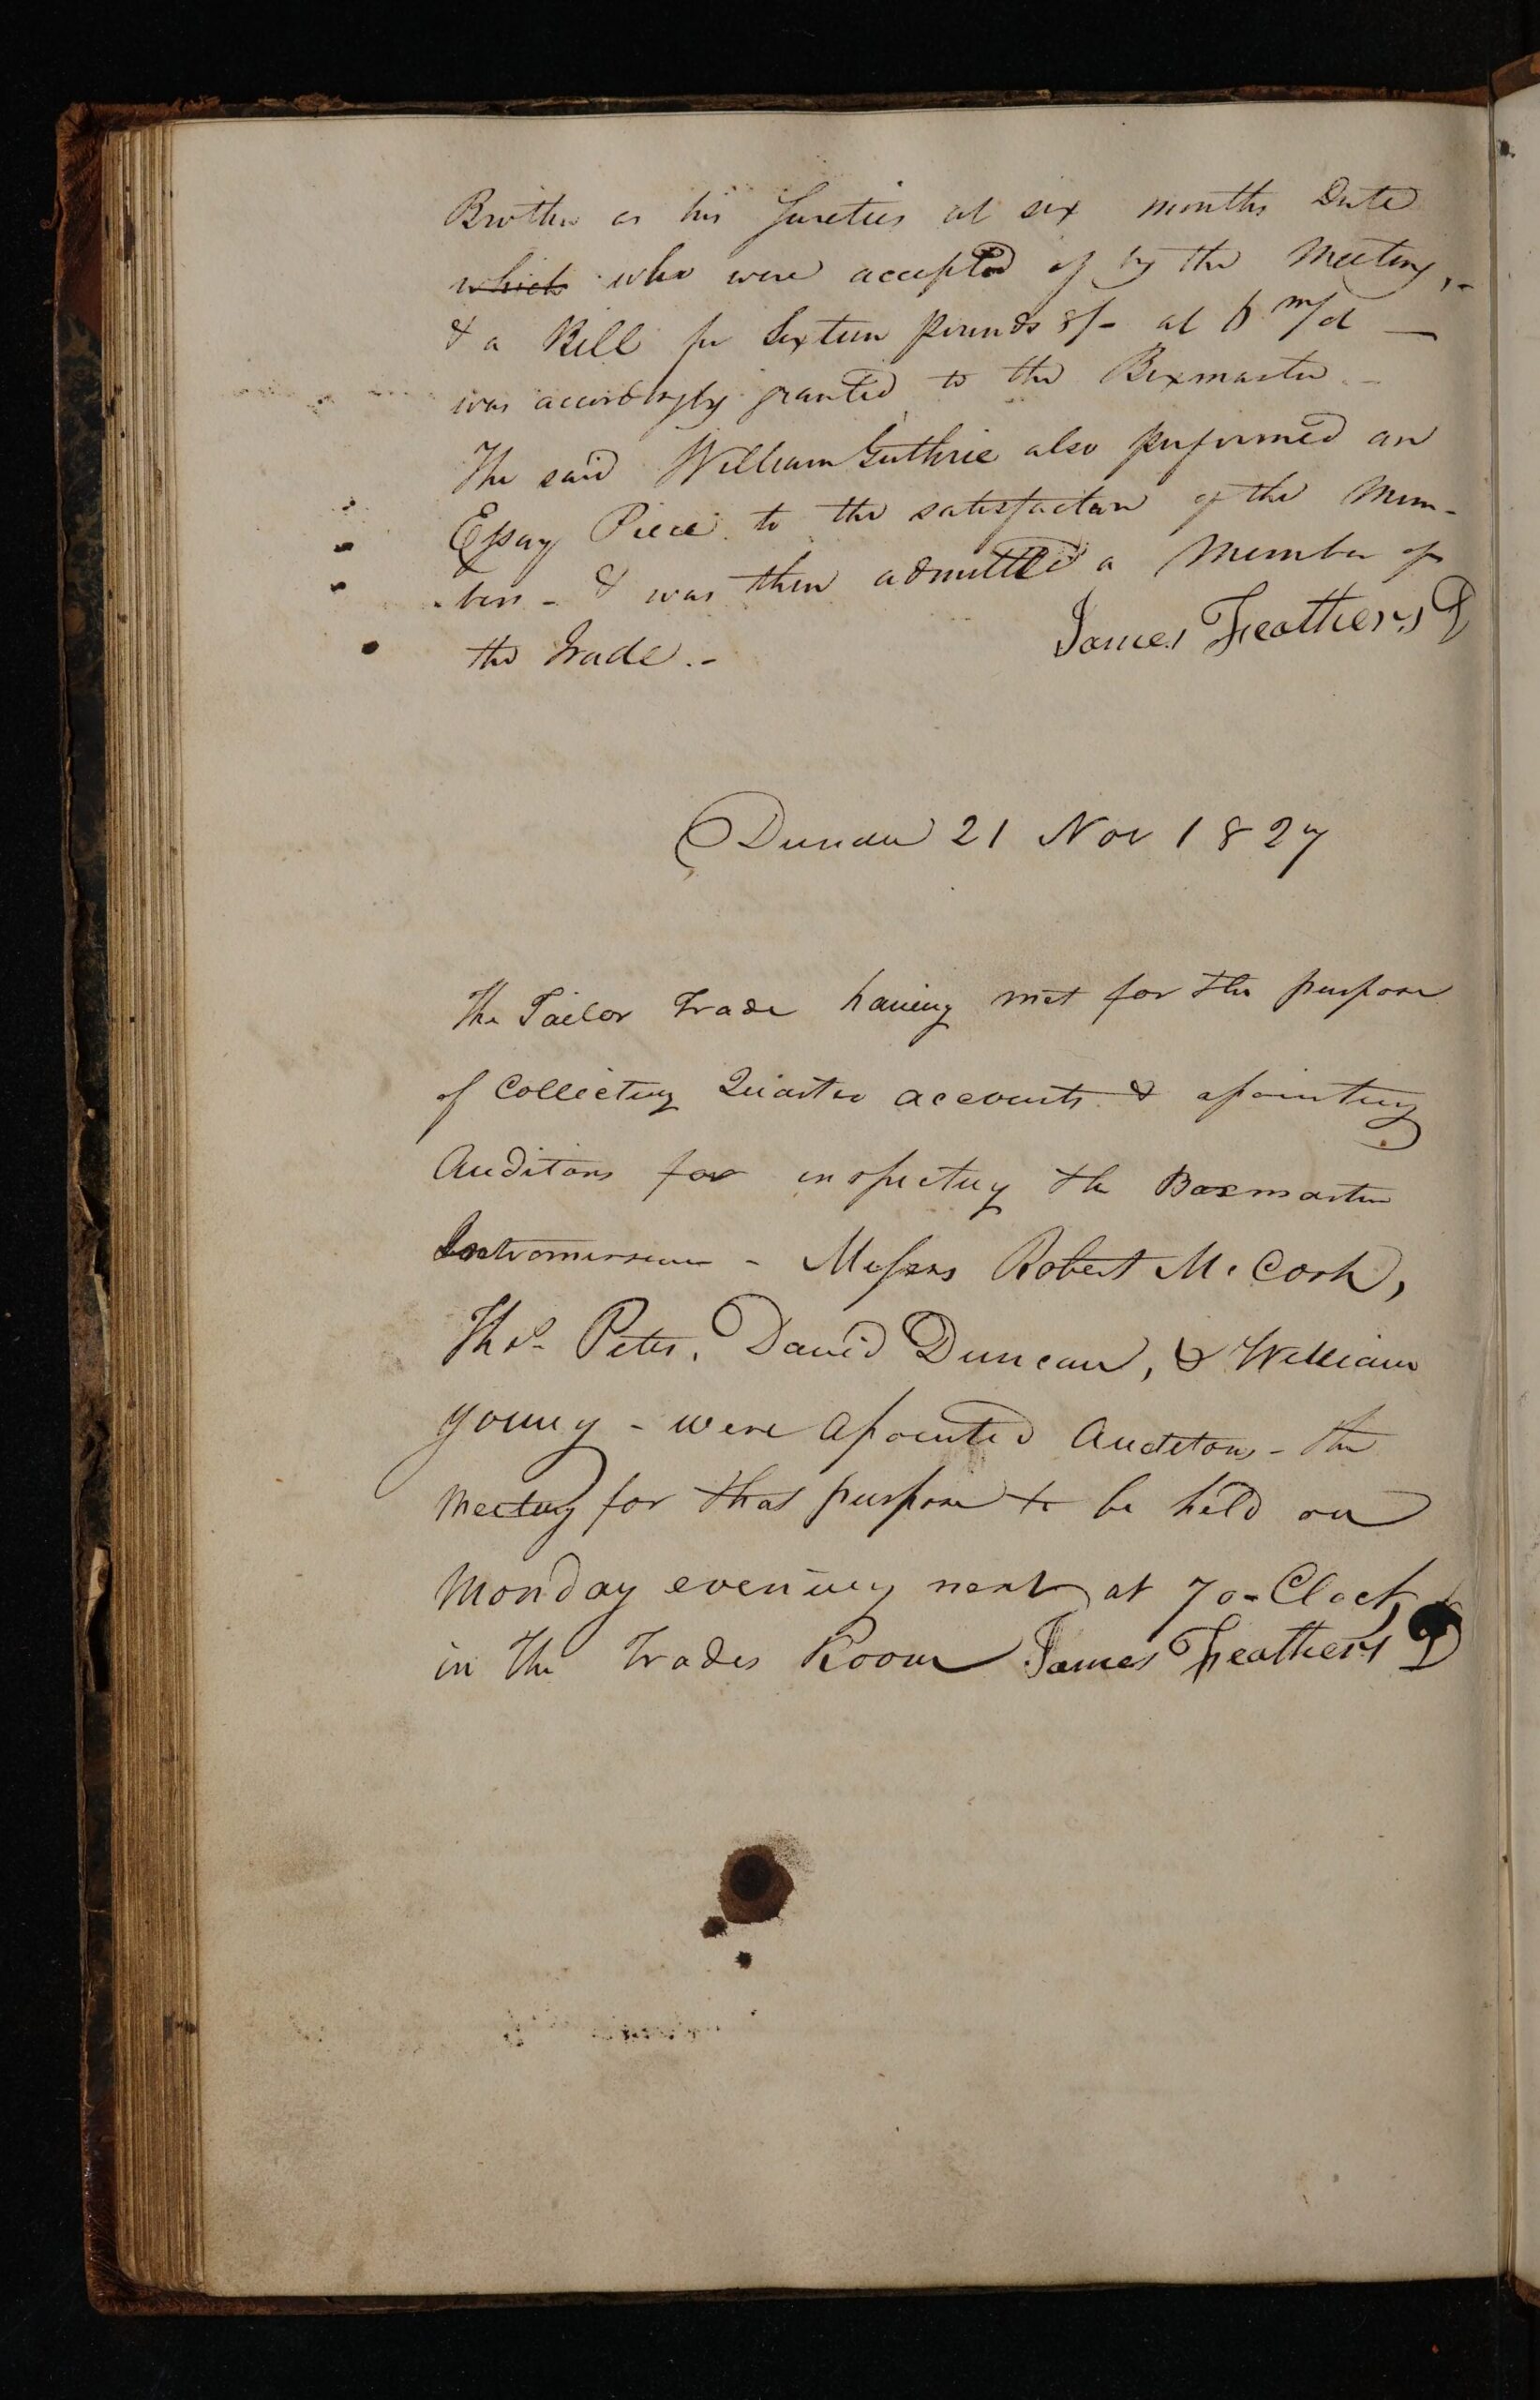 Brother as his Sureties at six months Date
which who were accepted of by the Meeting,-
& a Bill for Sixteen pounds 8/- at 6 m/d —
was accordingly granted to the Boxmaster -
The said William Guthrie also performed an
Essay Piece to the satisfaction of the Mem-
-bers - & was then admitted a Member of
the Trade.-
James Feathers D
Dundee 21 Nov 1827
The Tailor Trade having met for the purpose
of Collecting Quarter accounts & apointing
Auditors for inspecting the Boxmasters
Intromissions - Messrs Robert McCosh,
Thos. Peter, David Duncan, & William
Young - were Apointed Auditors - the
Meeting for that purpose to be held on
Monday evening next at 7 o-Clock
in the Trades Room James Feathers D